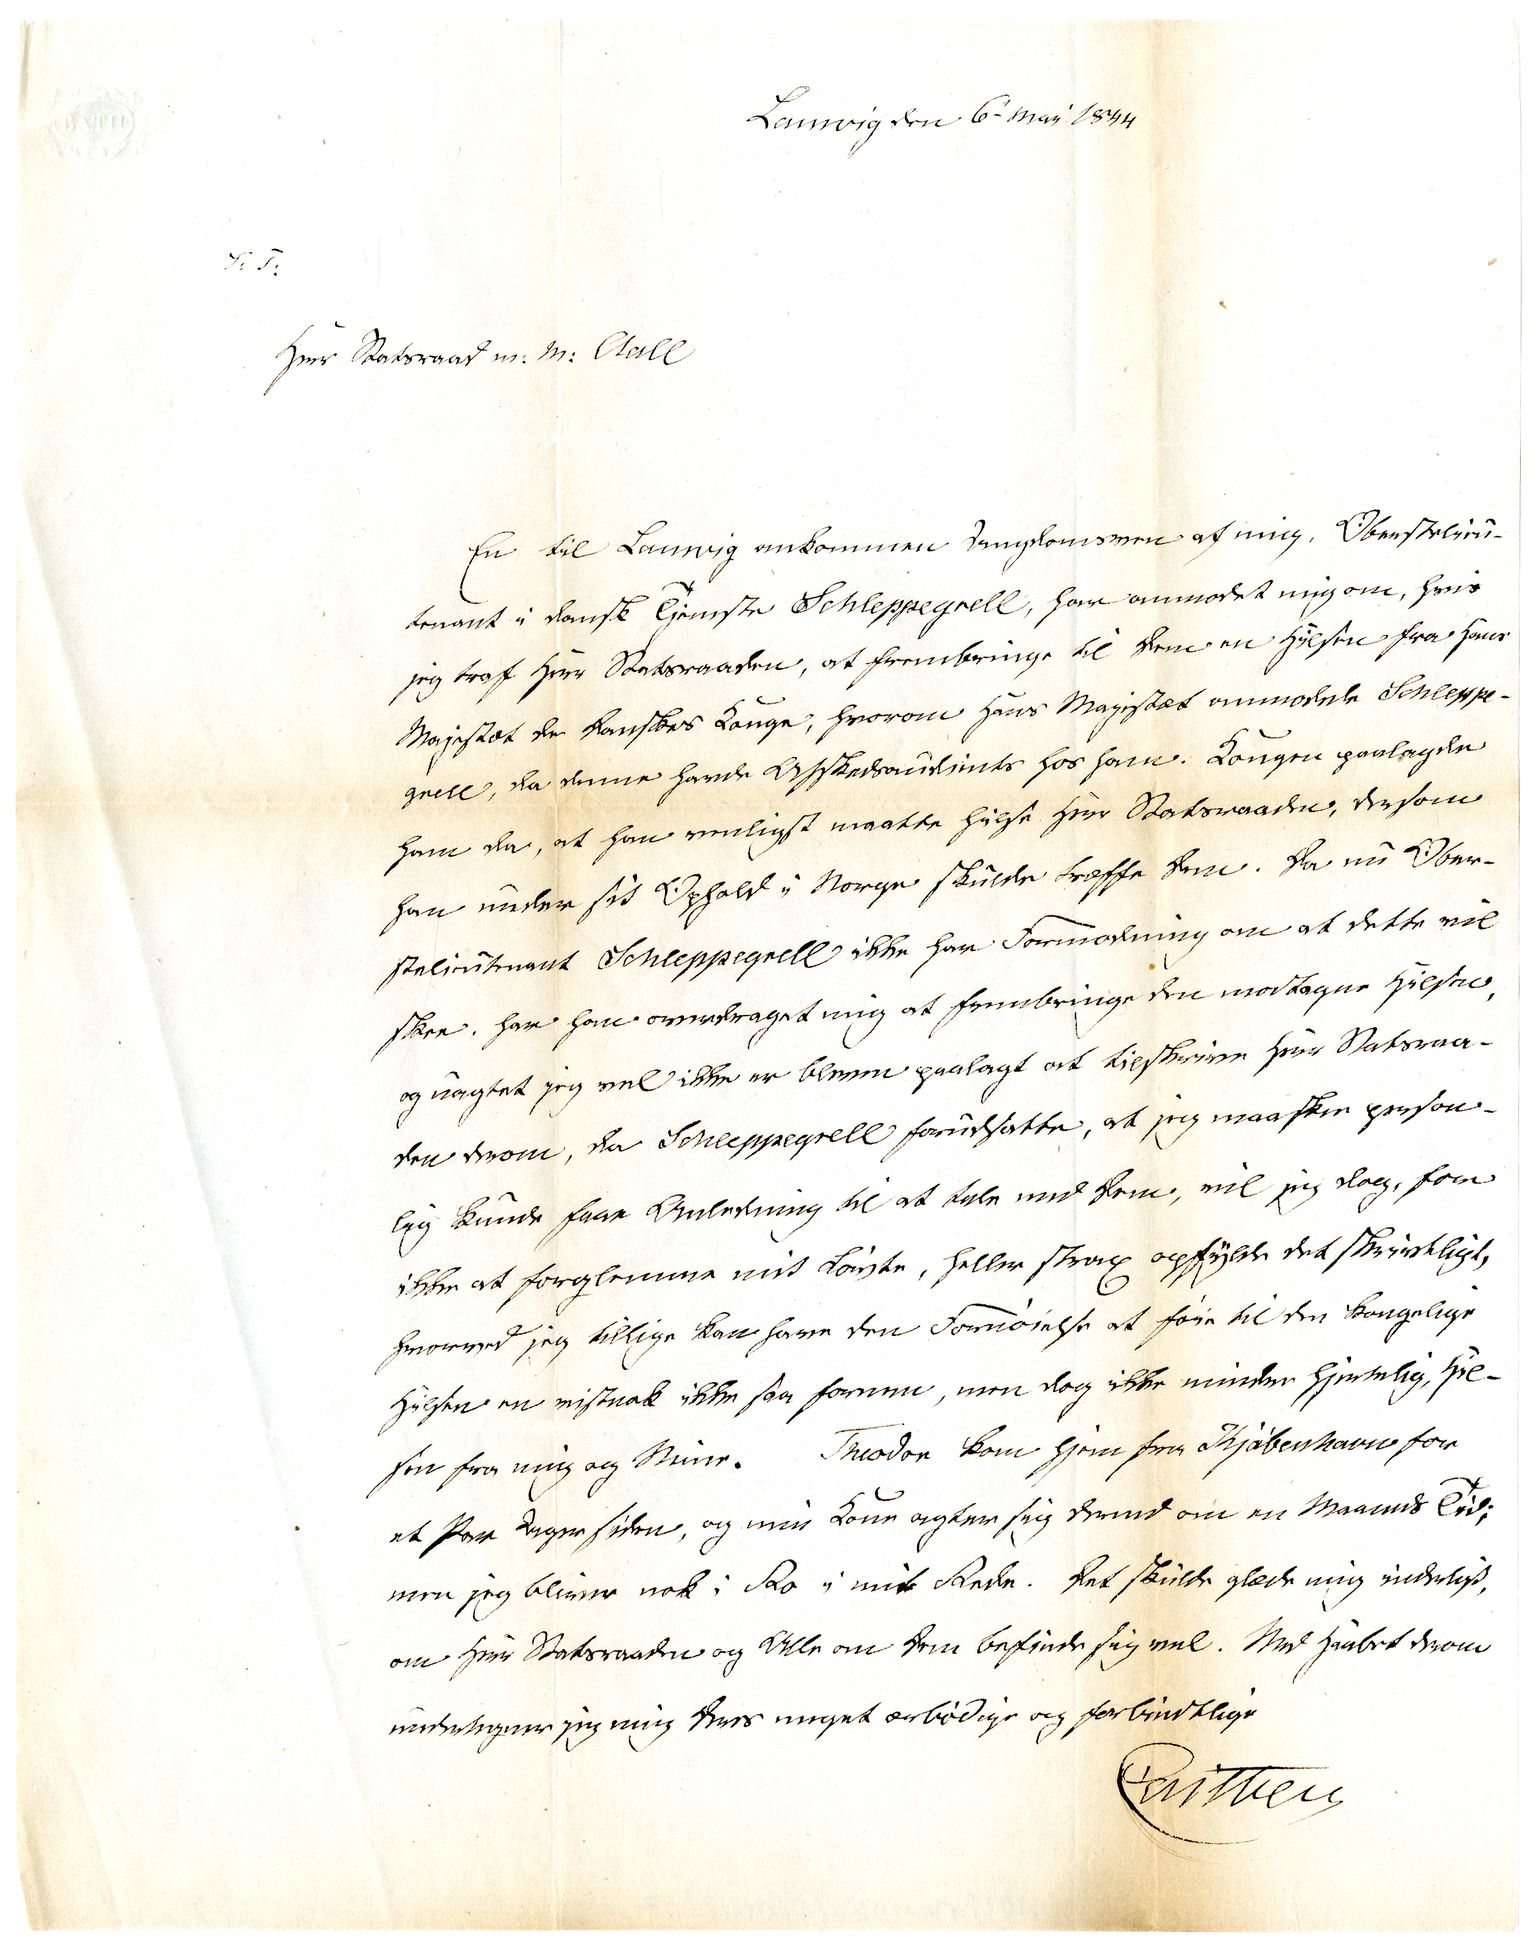 Laurvig den 6 Mai 1844
S. T.
Herr Statsraad m: m: Aall
En til Laurvig ankommen Ungdomsven af mig, Oberstelieu-
tenant i dansk Tjeneste Schleppegrell, har anmodet mig om, hvis
jeg traf Herr Statsraaden, at frembringe til Dem en Hilsen fra Hans
Majestæt de Danskes Konge, hvorom Hans Majestæt anmodede Schleppe-
grell, da denne havde Afskedsaudients hos ham. Kongen paalagde
ham da, at han venligst maatte hilse Herr Statsraaden, dersom
han under sit Ophold i Norge skulde træffe Dem. Da nu Ober-
stelieutenant Schleppegrell ikke har Formodning om at dette vil
skee, har han overdraget mig at frembringe den modtagne Hilsen,
og uagtet jeg vel ikke er bleven paalagt at tilskrive Herr Statsraa-
den derom, da Schleppegrell forudsatte, at jeg maaskee person-
lig kunde faae Anledning til at tale med Dem, vil jeg dog, for
ikke at forglemme mit Løvte, heller strax opfylde det skrivtligt,
hvorved jeg tillige kan have den Fornøielse at føie til den kongelige
Hilsen en vistnok ikke saa fornem, men dog ikke mindre hjertelig, Hil-
sen fra mig og Mine. Theodor kom hjem fra Kjøbenhavn for
et Par Dager siden, og min Kone agter sig derned om en Maaneds Tid;
men jeg bliver nok i Ro i mit Rede. Det skulde glæde mig inderligt,
om Herr Statsraaden og Alle om Dem befinde sig vel. Med Haabet derom
undertegner jeg mig Deres meget ærbødige og forbindtlige